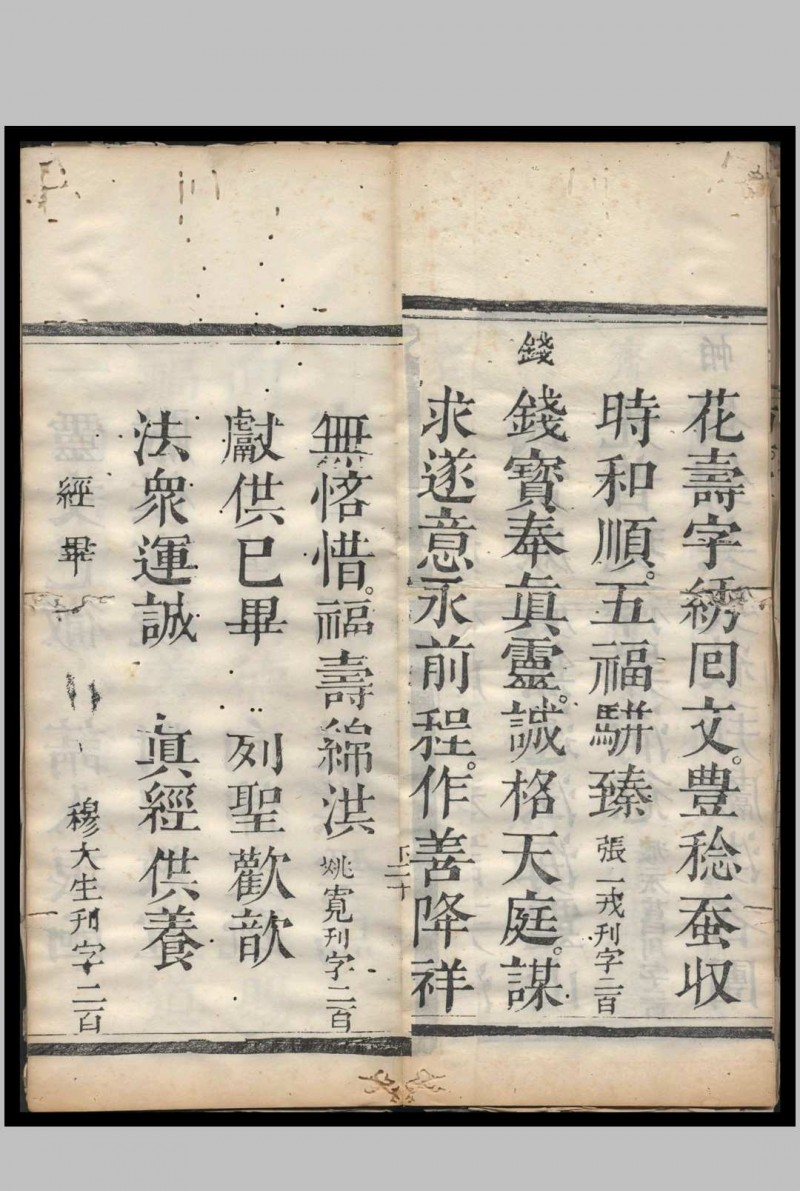 花壽字綉回文。豊稔蚕収
時和順。五福駢臻 張一戎刊字二百
錢
錢寳奉眞靈。誠格天庭。謀
求遂意永前程。作善降祥
下二十
無悋惜。福壽綿洪 姚寬刊字二百
獻供已畢 列聖歡歆
法衆運誠 眞經供養
經畢 穆大生刊字二百